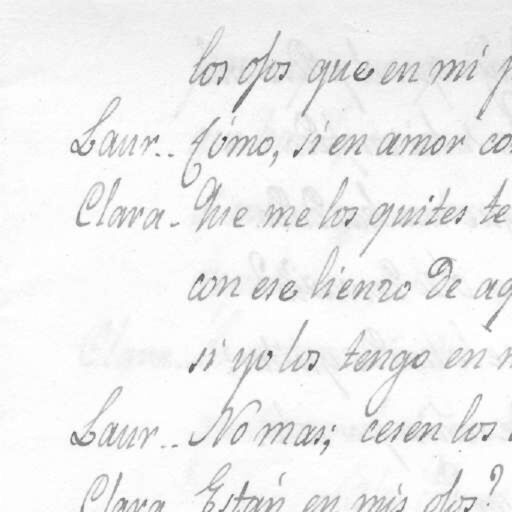 los ojos que en mi
Laur.. Cómo, si en amor
Clara - Que me los quites te
con ese lienzo de
si yo los tengo en
Laur.. No mas; cesen los
Clara Están en mis ojos?